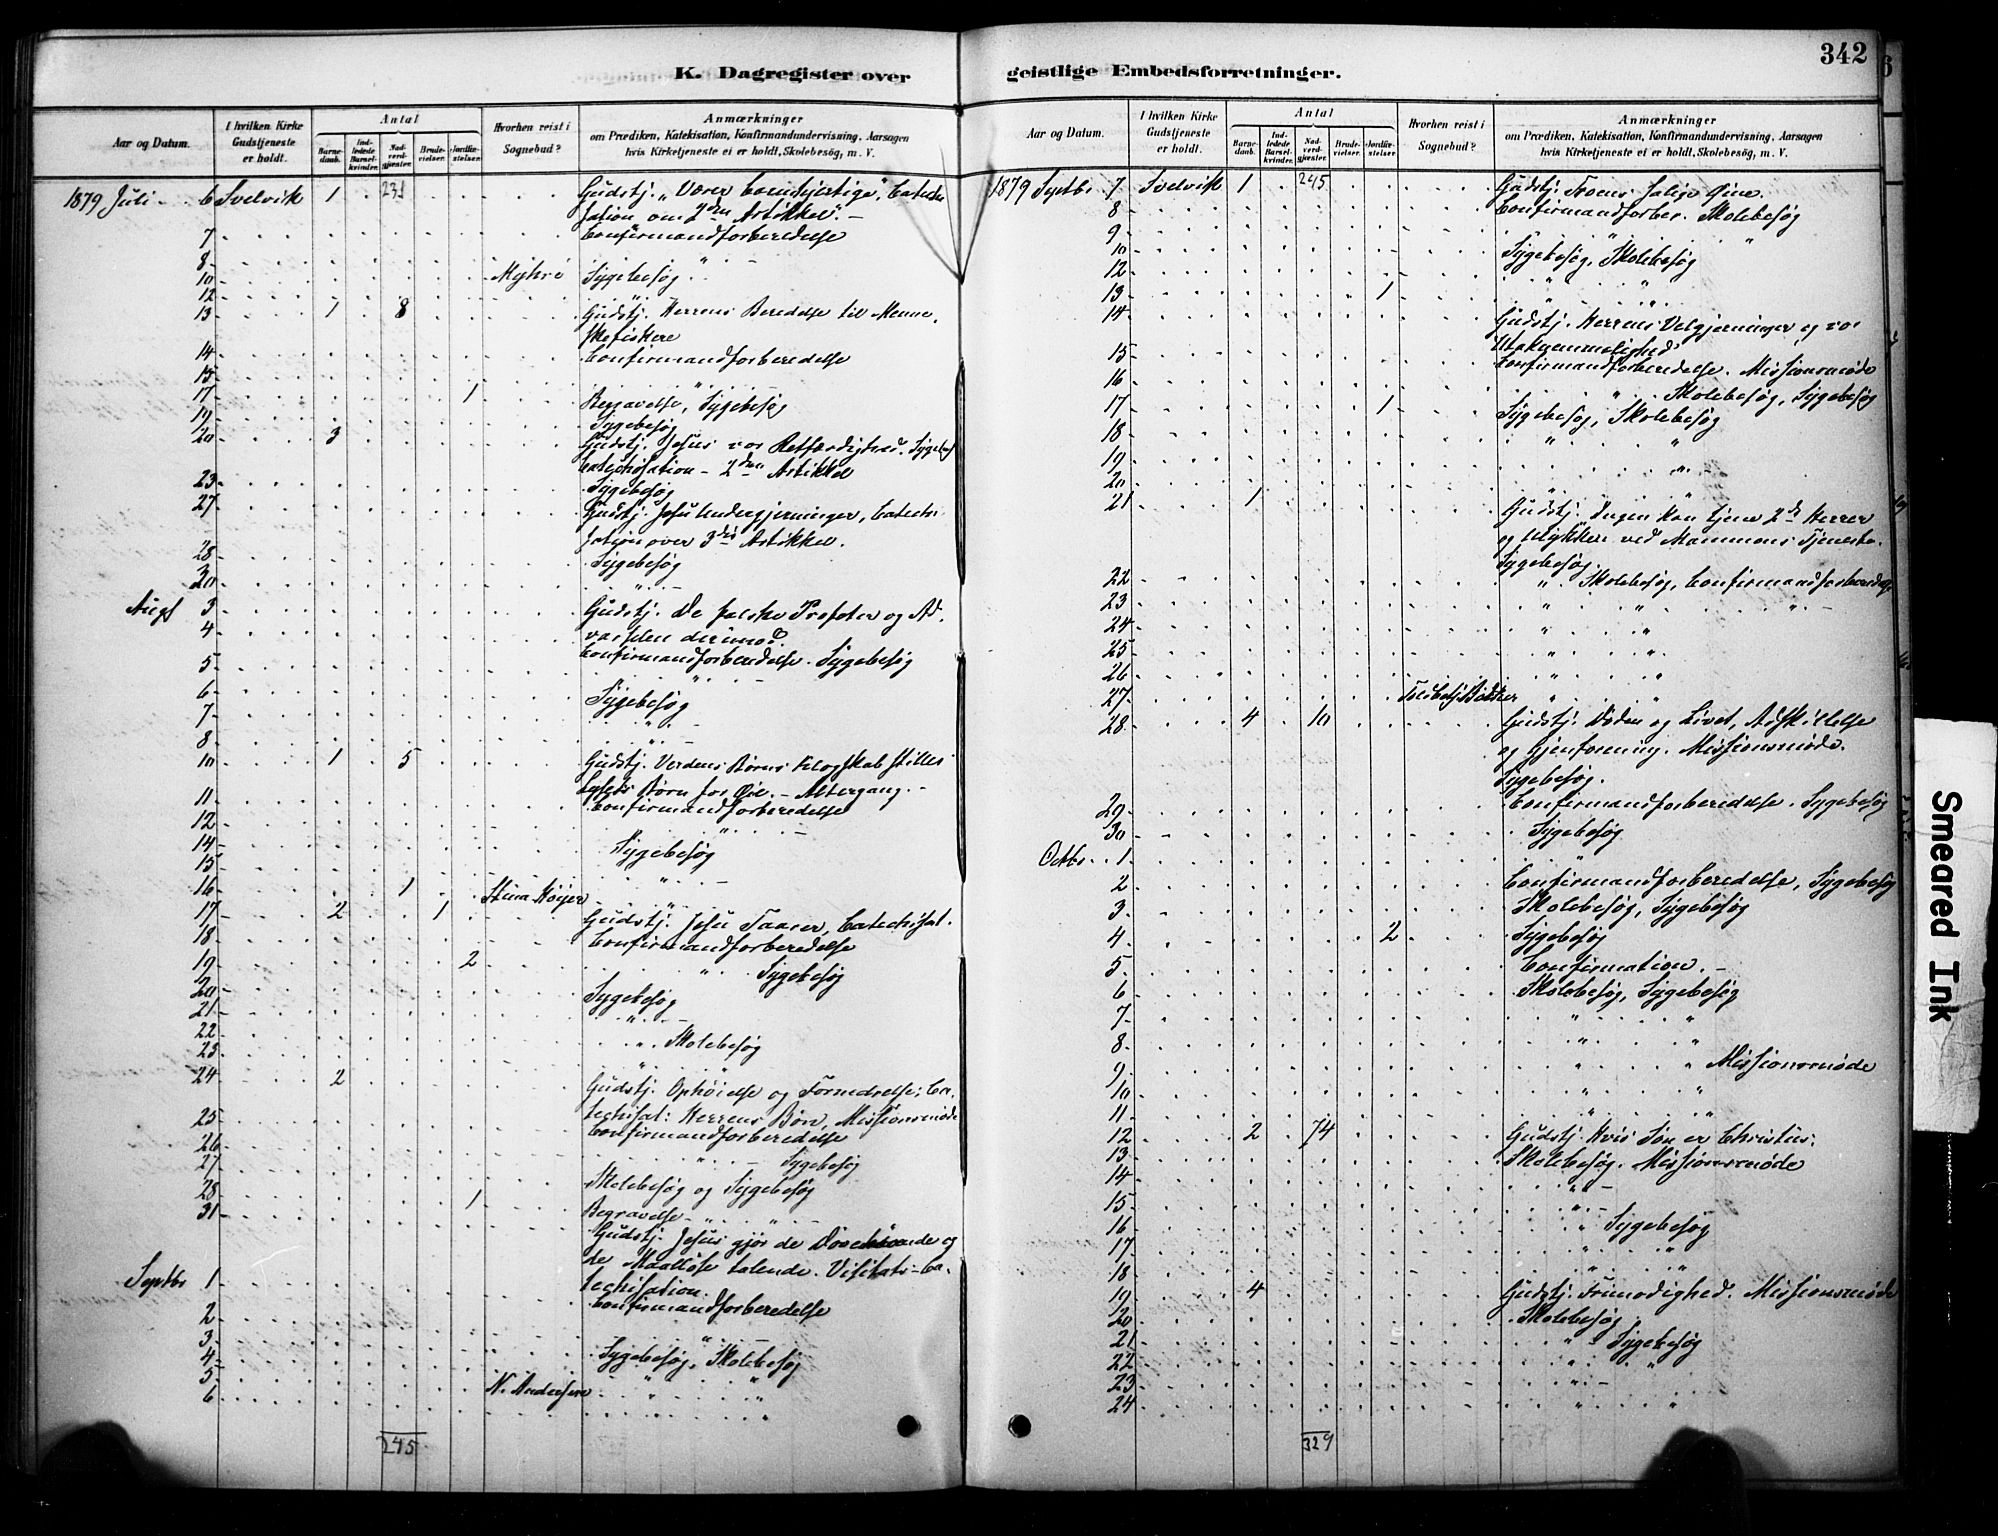 342
K. Dagregister over
geistlige Embedsforretninger.
Aar og Datum.
I hvilken Kirke Gudstjeneste er holdt.
Antal
Barnedaab.
Indledede Barselkvinder.
Nadverdgjæster.
Brudevielser.
Jordfæstelser.
Hvorhen reist i Sognebud?
Anmærkninger
om Prædiken, Katekisation, Konfirmandundervisning, Aarsagen
hvis Kirketjeneste ei er holdt, Skolebesög, m. V.
1879 Juli 6 Svelvik 1 231 Gudstj. "Værer barmhjertige", Catechi
sation om 2den Artikkel. –
7 Confirmandforberedelse
8 " –
10 Myhre Sygebesøg
12 "
13 1 8 Gudstj. Herrens Beredelse til Menne-
skefiskere
14 Confirmandforberedelse
15 "
17 1 Begravelse, Sygebesøg
19 Sygebesøg
20 3 Gudstj. Jesus vor Retfærdighed. Sygebes
Catechisation – 2den Artikkel
23 Sygebesøg
27 Gudstj. Jesu Undergjerninger, Catechi
sation over 3die Artikkel.
28 Sygebesøg
30 " –
Augs 3 Gudstj. De falske Profeter og Ad-
varselen derimod.
4 Confirmandforberedelse. Sygebesøg
5 " –
6 Sygebesøg
7 " –
8 " –
10 1 5 Gudstj. Verdens Børns Klogskab stilles
Lysets Børn for Øie. – Altergang. –
11 Confirmandforberedelse
12 " –
14 Sygebesøg
15 " –
16 1 Stina Höyer "
17 2 1 Gudstj. Jesu Taarer, Catechisat.
18 Confirmandforberedelse
19 2 " Sygebesøg
20 Sygebesøg
21 " –
22 " Skolebesøg
23 " "
24 2 Gudstj. Ophöielse og Fornedrelse; Ca-
techisat: Herrens Bön, Missionsmøde
25 Confirmandforberedelse
26 " – Sygebesøg
27 Skolebesøg og Sygebesøg
28 1 Begravelse – " "
31 Gudstj. Jesus gjör de Døve hørende og
de Maallöse talende. Visitats-Ca-
techisation.
Septbr 1 Confirmandforberedelse
2 " –
3 Sygebesøg, Skolebesøg
4 " "
5 N. Andersen " "
6 " "
245
Aar og Datum.
I hvilken Kirke Gudstjeneste er holdt.
Antal
Barnedaab.
Indledede Barselkvinder.
Nadverdgjæster.
Brudevielser.
Jordfæstelser
Hvorhen reist i Sognebud?
Anmærkninger
om Prædiken, Katekisation, Konfirmandundervisning, Aarsagen
hvis Kirketjeneste ei er holdt, Skolebesög, m. V.
1879 Septbr 7 Svelvik 1 245 Gudstj. Troens salige Øine.
8 Confirmandforber. Skolebesøg
9 " "
10 Sygebesøg, Skolebesøg
12 " "
13 1 " "
14 Gudstj. Herrens Velgjerninger og vor
Utaknemmelighed
15 Confirmandforberedelse. Missionsmøde
16 " Skolebesøg, Sygebesøg
17 1 Sygebesøg, Skolebesøg
18 " "
19 "
20 "
21 1 Gudstj. Ingen kan tjene 2de Herrer
og Ulykken ved Mammons Tjeneste.
Sygebesøg.
22 " Skolebesøg, Confirmandforberedelse
23 " " "
24 " "
25 " "
26 " "
27 " "
28 4 10 Gudstj. Døden og Livet, Adskillelse
og Gjenforening. Missionsmøde.
Sygebesøg.
29 Confirmandforberedelse. Sygebesøg
30 Sygebesøg
Octbr 1 "
2 Confirmandforberedelse, Sygebesøg
3 Skolebesøg, Sygebesøg
4 2 Sygebesøg
5 Confirmation. –
6 Skolebesøg, Sygebesøg
7 " "
8 " "
9 " " Missionsmøde
10 " "
11 " "
12 2 74 Gudstj. Hvis Søn er Christus;
13 Skolebesøg. Missionsmøde
14 " –
15 " –
16 " Sygebesøg
17 " "
18 " "
19 4 Gudstj. Frimodighed. Missionsmøde
20 Skolebesøg
21 " Sygebesøg
22 " "
23 " –
24 " "
329
Smeared Ink